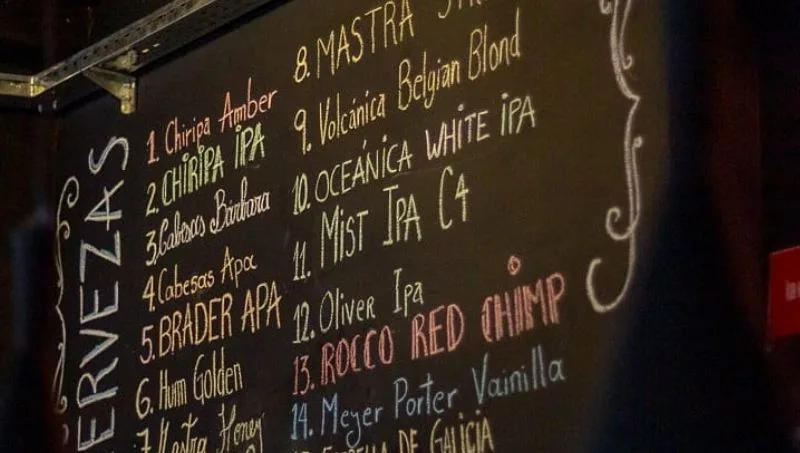 ERVEZAS
1. Chiripa Amber
2. CHIRIPA IPA
3. Cabesas Bárbara
4. Cabesas Apa
5. BRADER APA
6. Hum Golden
7. Mastra Honey
8. MASTRA
9. Volcánica Belgian Blond
10. OCEÁNICA WHITE IPA
11. MIST IPA C4
12. Oliver Ipa
13. ROCCO RED CHIMP
14. Meyer Porter Vainilla
DE GALICIA